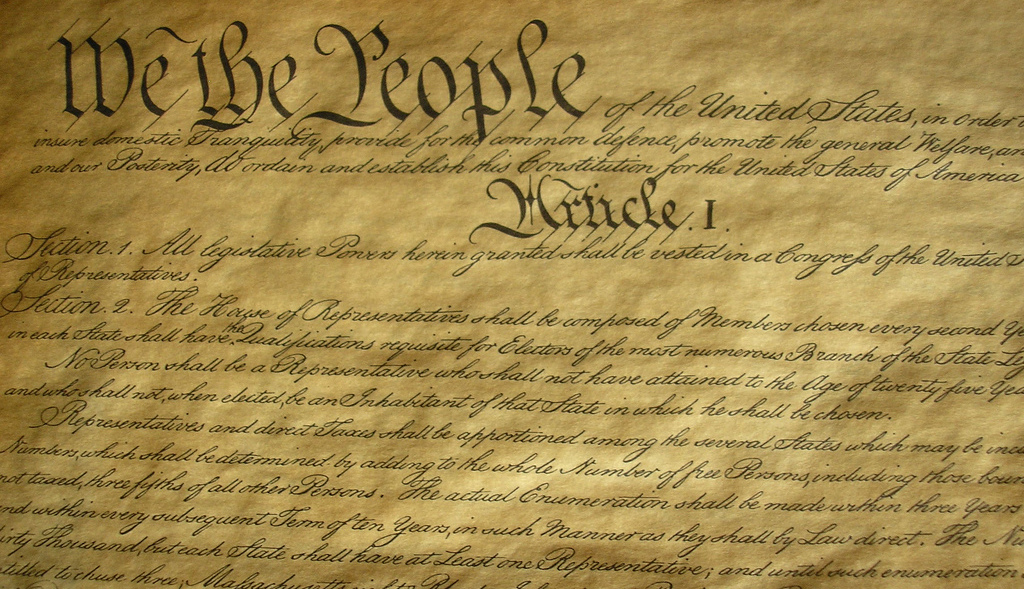 We the People of the United States, in order
insure domestic Tranquility, provide for the common defence, promote the general Welfare,
and our Posterity, do ordain and establish this Constitution for the United States of America
Article. I.
Section. 1. All legislative Powers herein granted shall be vested in a Congress of the United
of Representatives.
Section. 2. The House of Representatives shall be composed of Members chosen every second
in each State shall have the Qualifications requisite for Electors of the most numerous Branch of the State
No Person shall be a Representative who shall not have attained to the Age of twenty five
and who shall not, when elected, be an Inhabitant of that State in which he shall be chosen.
Representatives and direct Taxes shall be apportioned among the several States which may be
Numbers, which shall be determined by adding to the whole Number of free Persons, including those
not taxed, three fifths of all other Persons. The actual Enumeration shall be made within three Years
and within every subsequent Term of ten Years, in such Manner as they shall by Law direct. The
Thousand, but each State shall have at Least one Representative; and until such enumeration
to chuse three, Massachusetts